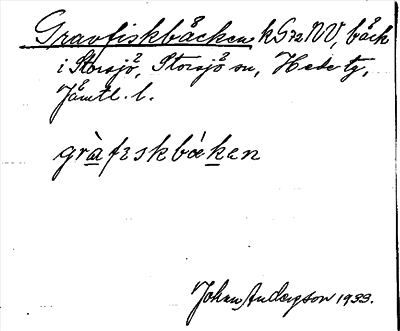 Gravfiskbäcken kG72NV, bäck
i Storsjö, Storsjö sn, Hede tg,
Jämtl. l.
gràfiskbæken
Johan Anderson 1933.